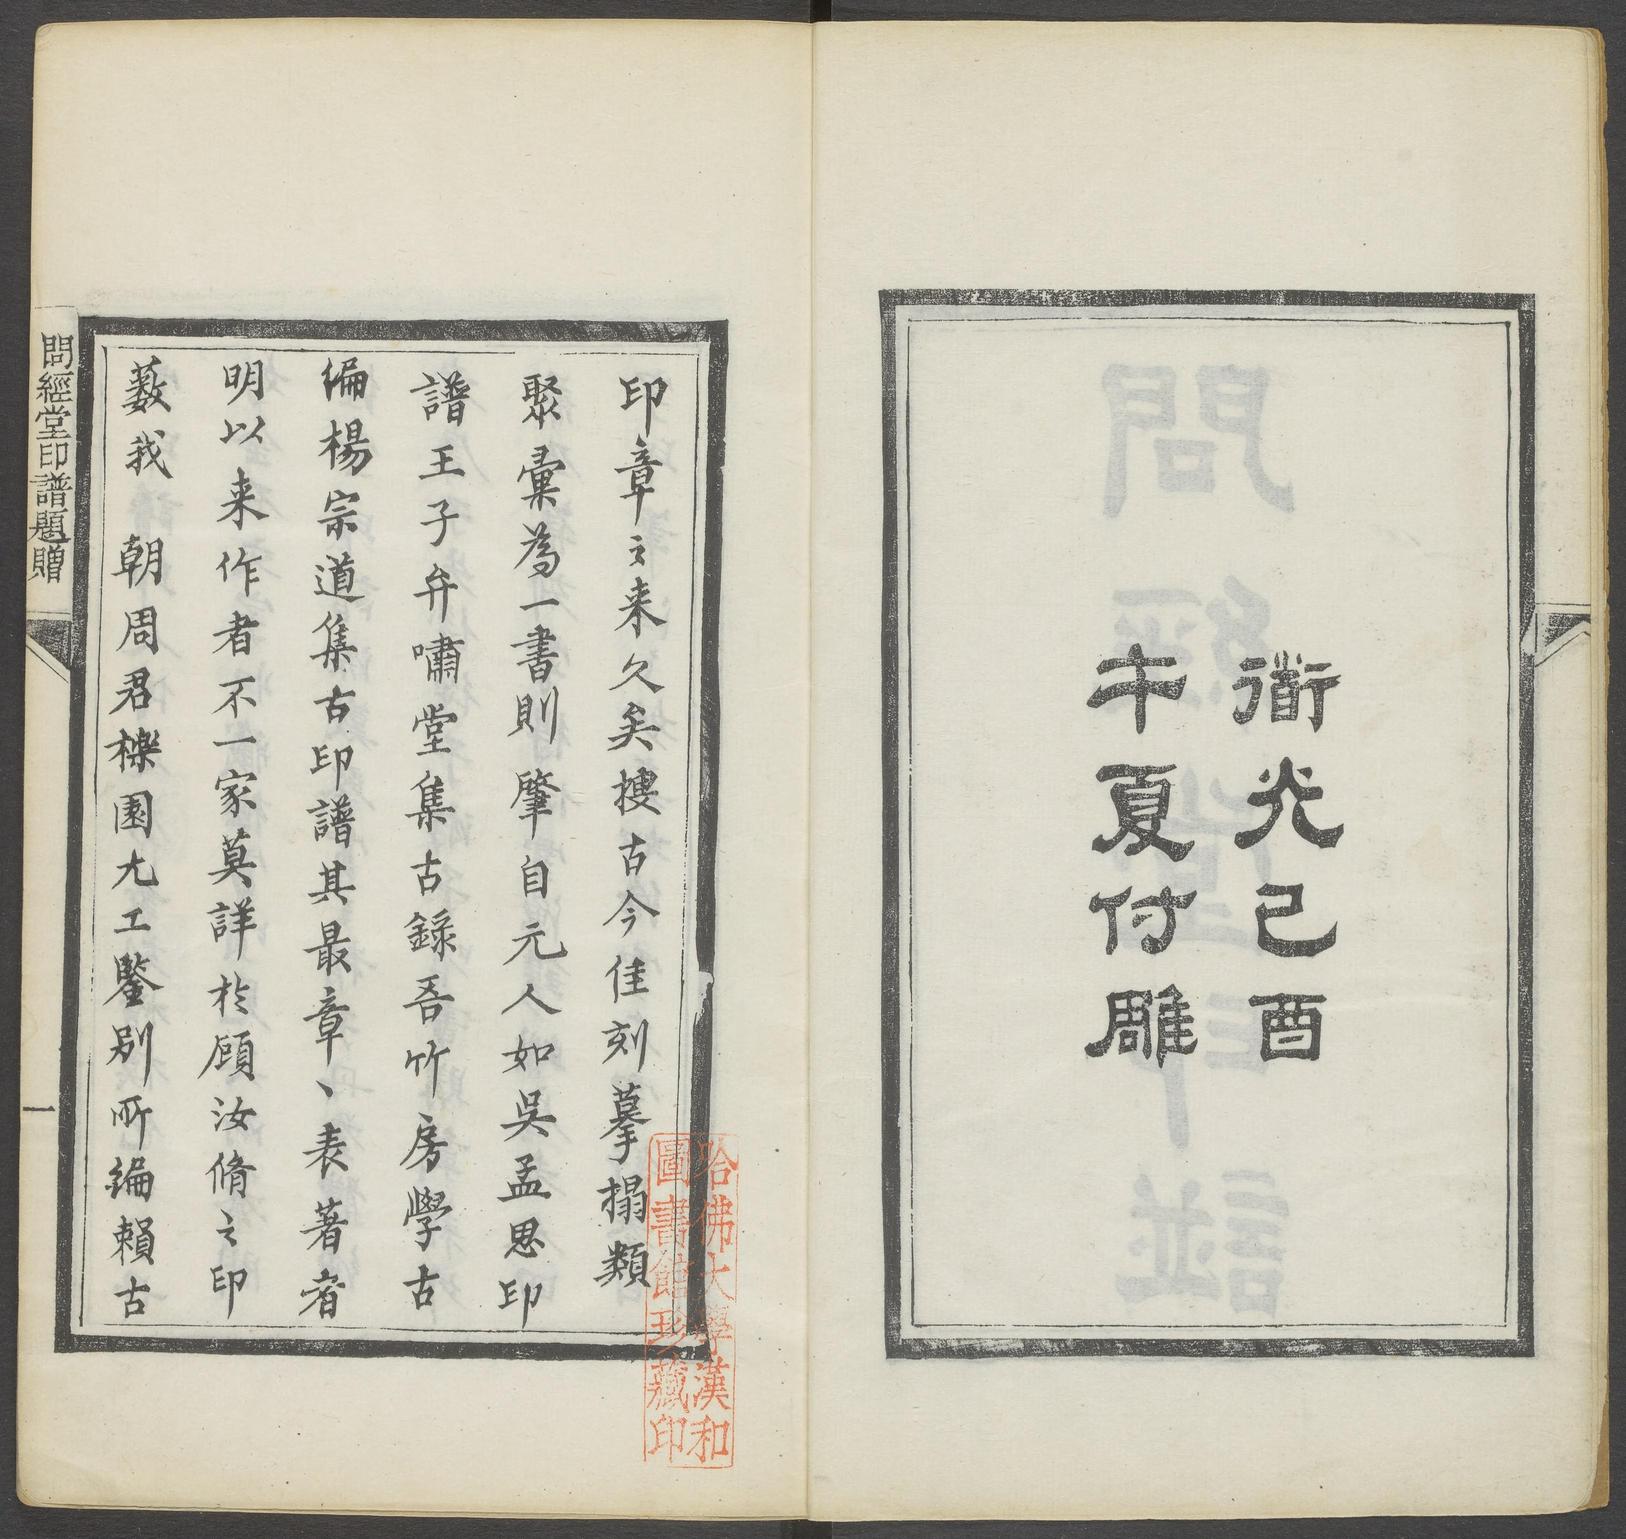 衜光己酉
午夏付雕
印章之来久矣搜古今佳刻摹搨類
聚彙為一書則肇自元人如吳孟思印
譜王子弁嘯堂集古錄吾竹房學古
編楊宗道集古印譜其最章、表著者
明以来作者不一家莫詳於顧汝脩之印
藪我 朝周君櫟園尤工鑒别所編賴古
問經堂印譜題贈
一
哈佛大學漢和
圖書館珍藏印